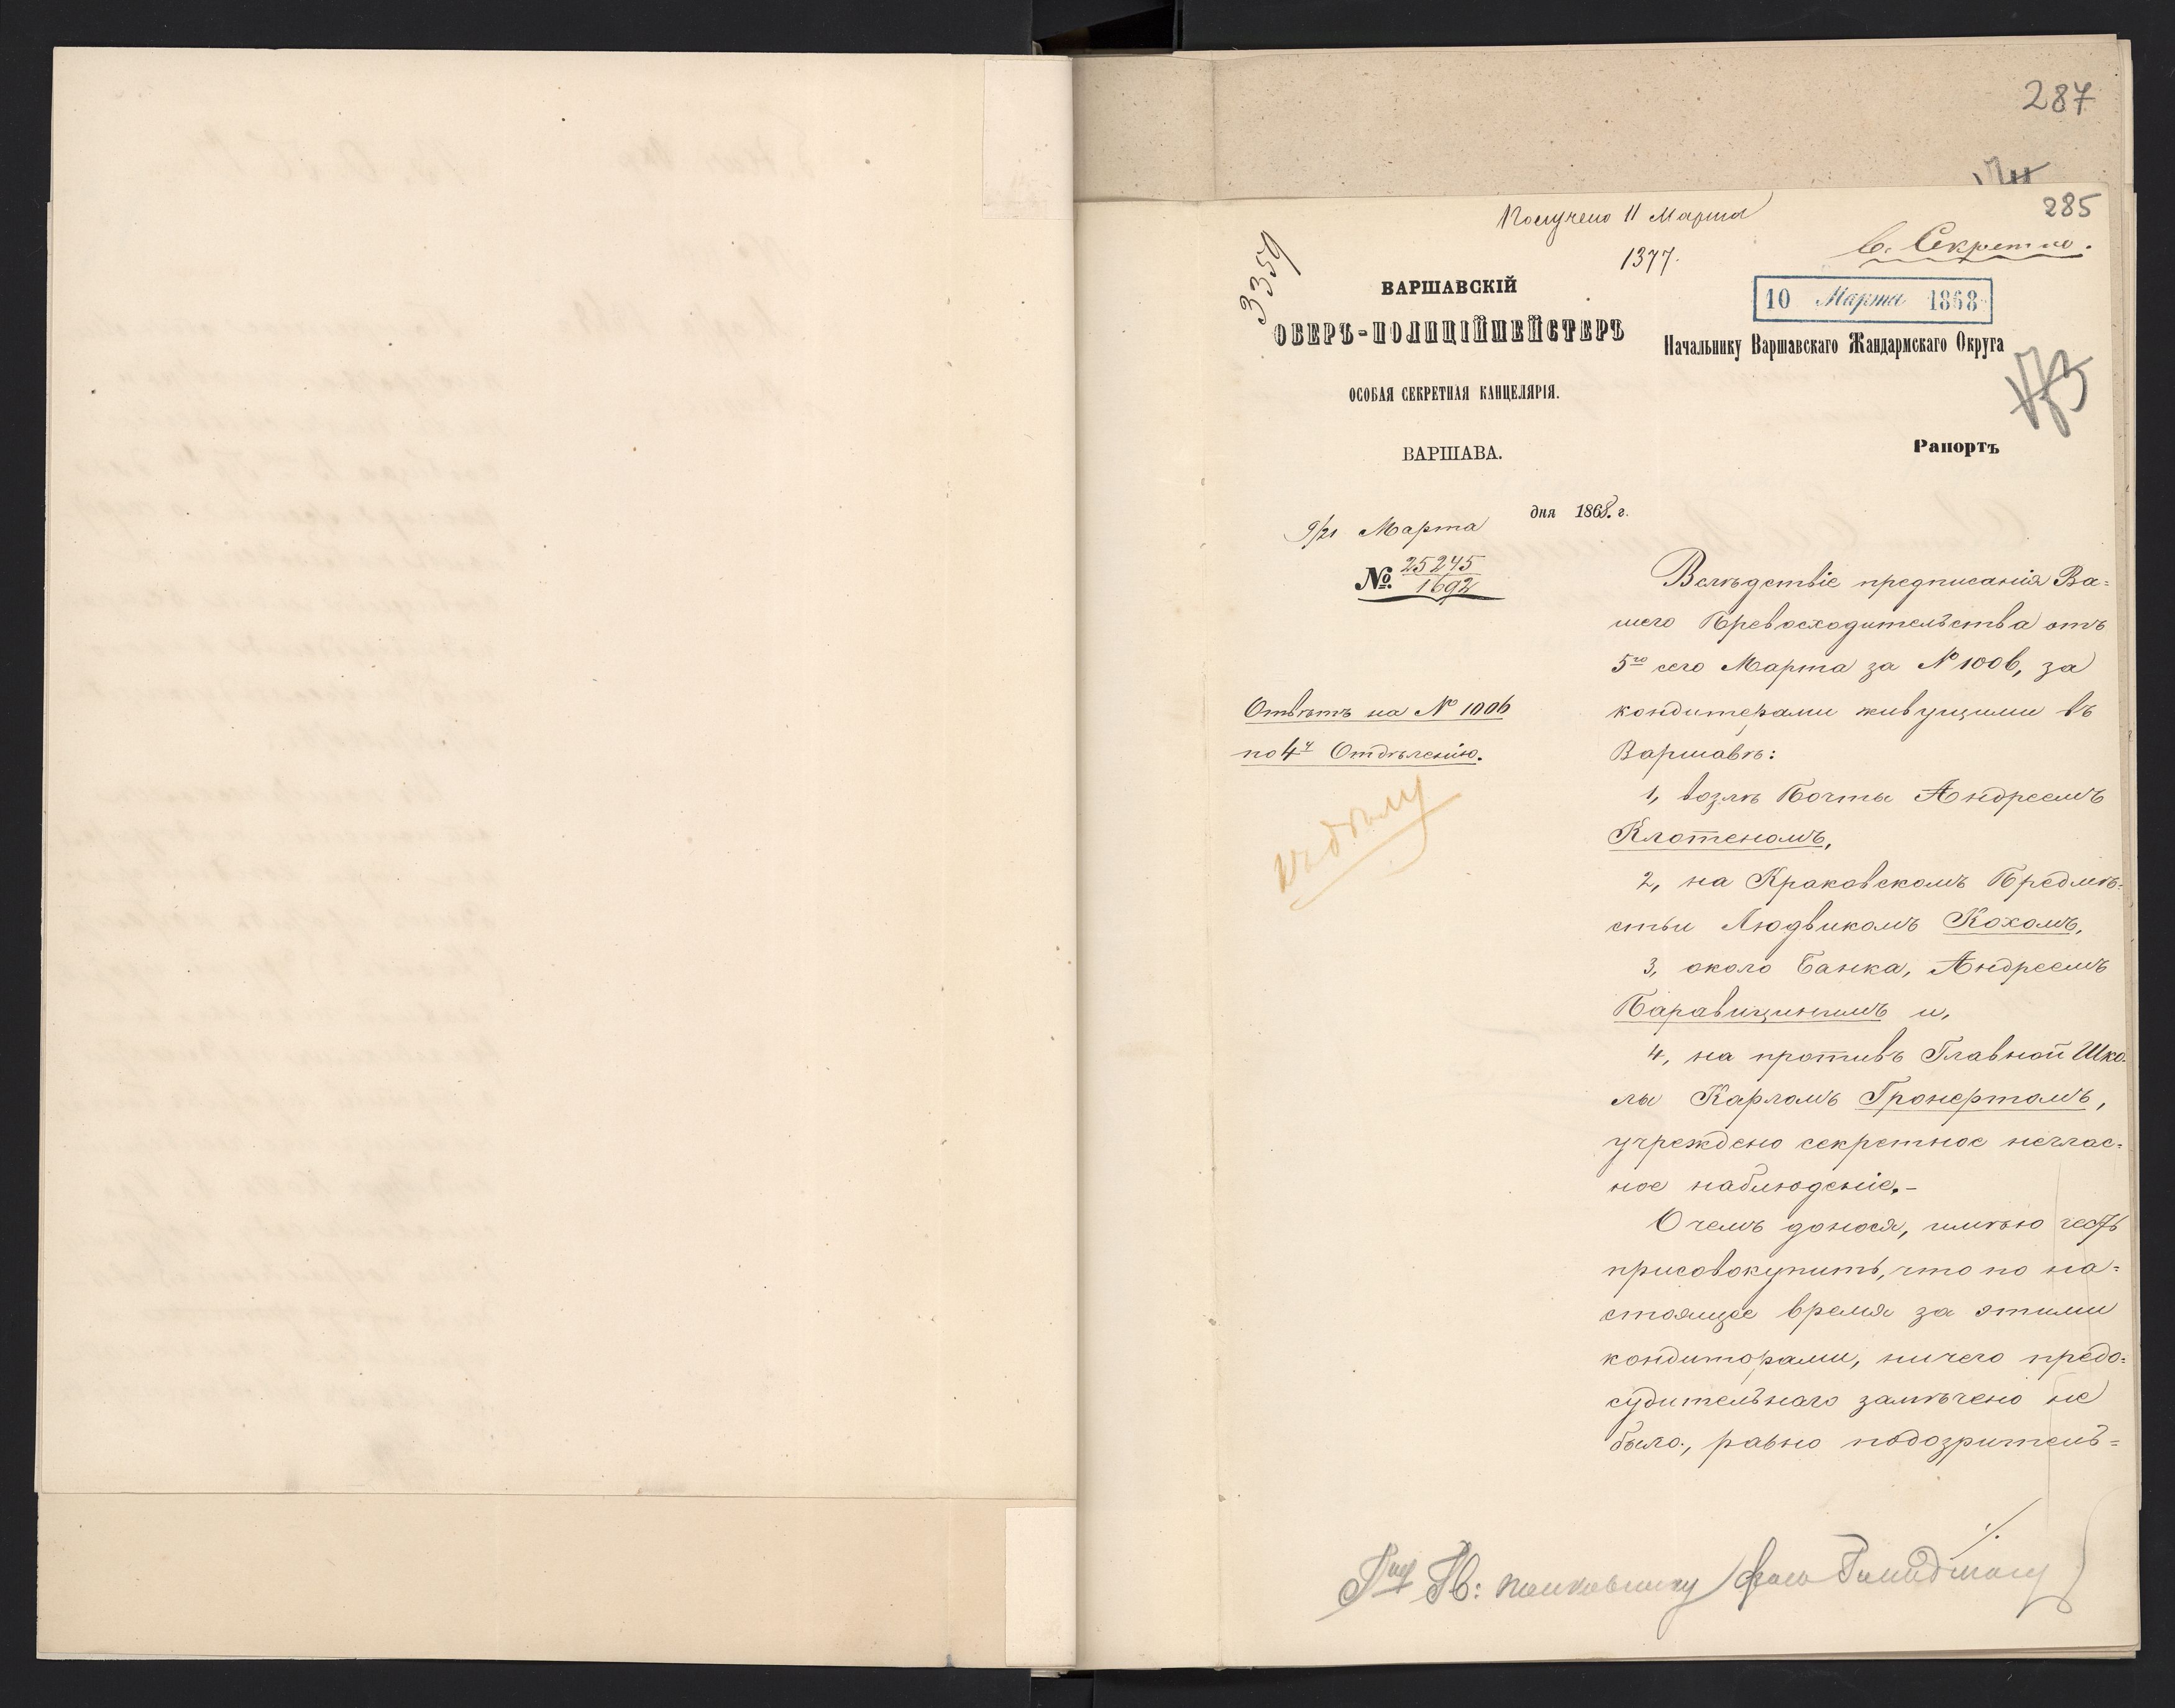 287
285
Получено 11 Марта
1377.
С. Секретно.
3359
ВАРШАВСКІЙ
ОБЕРЪ-ПОЛИЦІЙМЕЙСТЕРЪ
ОСОБАЯ СЕКРЕТНАЯ КАНЦЕЛЯРІЯ.
ВАРШАВА.
9/21 Марта дня 1868. г.
№ 25245
1692
Отвѣтъ на № 1006
по 4у Отдѣленію.
къ дѣлу
10 Марта 1868
Начальнику Варшавскаго Жандармскаго Округа
173
Рапортъ
Вслѣдствіе предписанія Ва=
шего Превосходительства отъ
5го сего Марта за № 1006, за
кондитерами живущими въ
Варшавѣ:
1, возлѣ Почты Андреемъ
Клотеномъ,
2, на Краковскомъ Предмѣ-
стьи Людвикомъ Кохомъ,
3, около Банка, Андреемъ
Паравицинимъ и,
4, на противъ Главной Шко-
лы Карломъ Гронертомъ,
учреждено секретное неглас=
ное наблюденіе.-
О чемъ донося, имѣю честь
присовокупить, что по на=
стоящее время за этими
кондиторами, ничего предо=
судительнаго замѣчено не
было, равно подозритель=
./.
Пв: полковнику фонъ